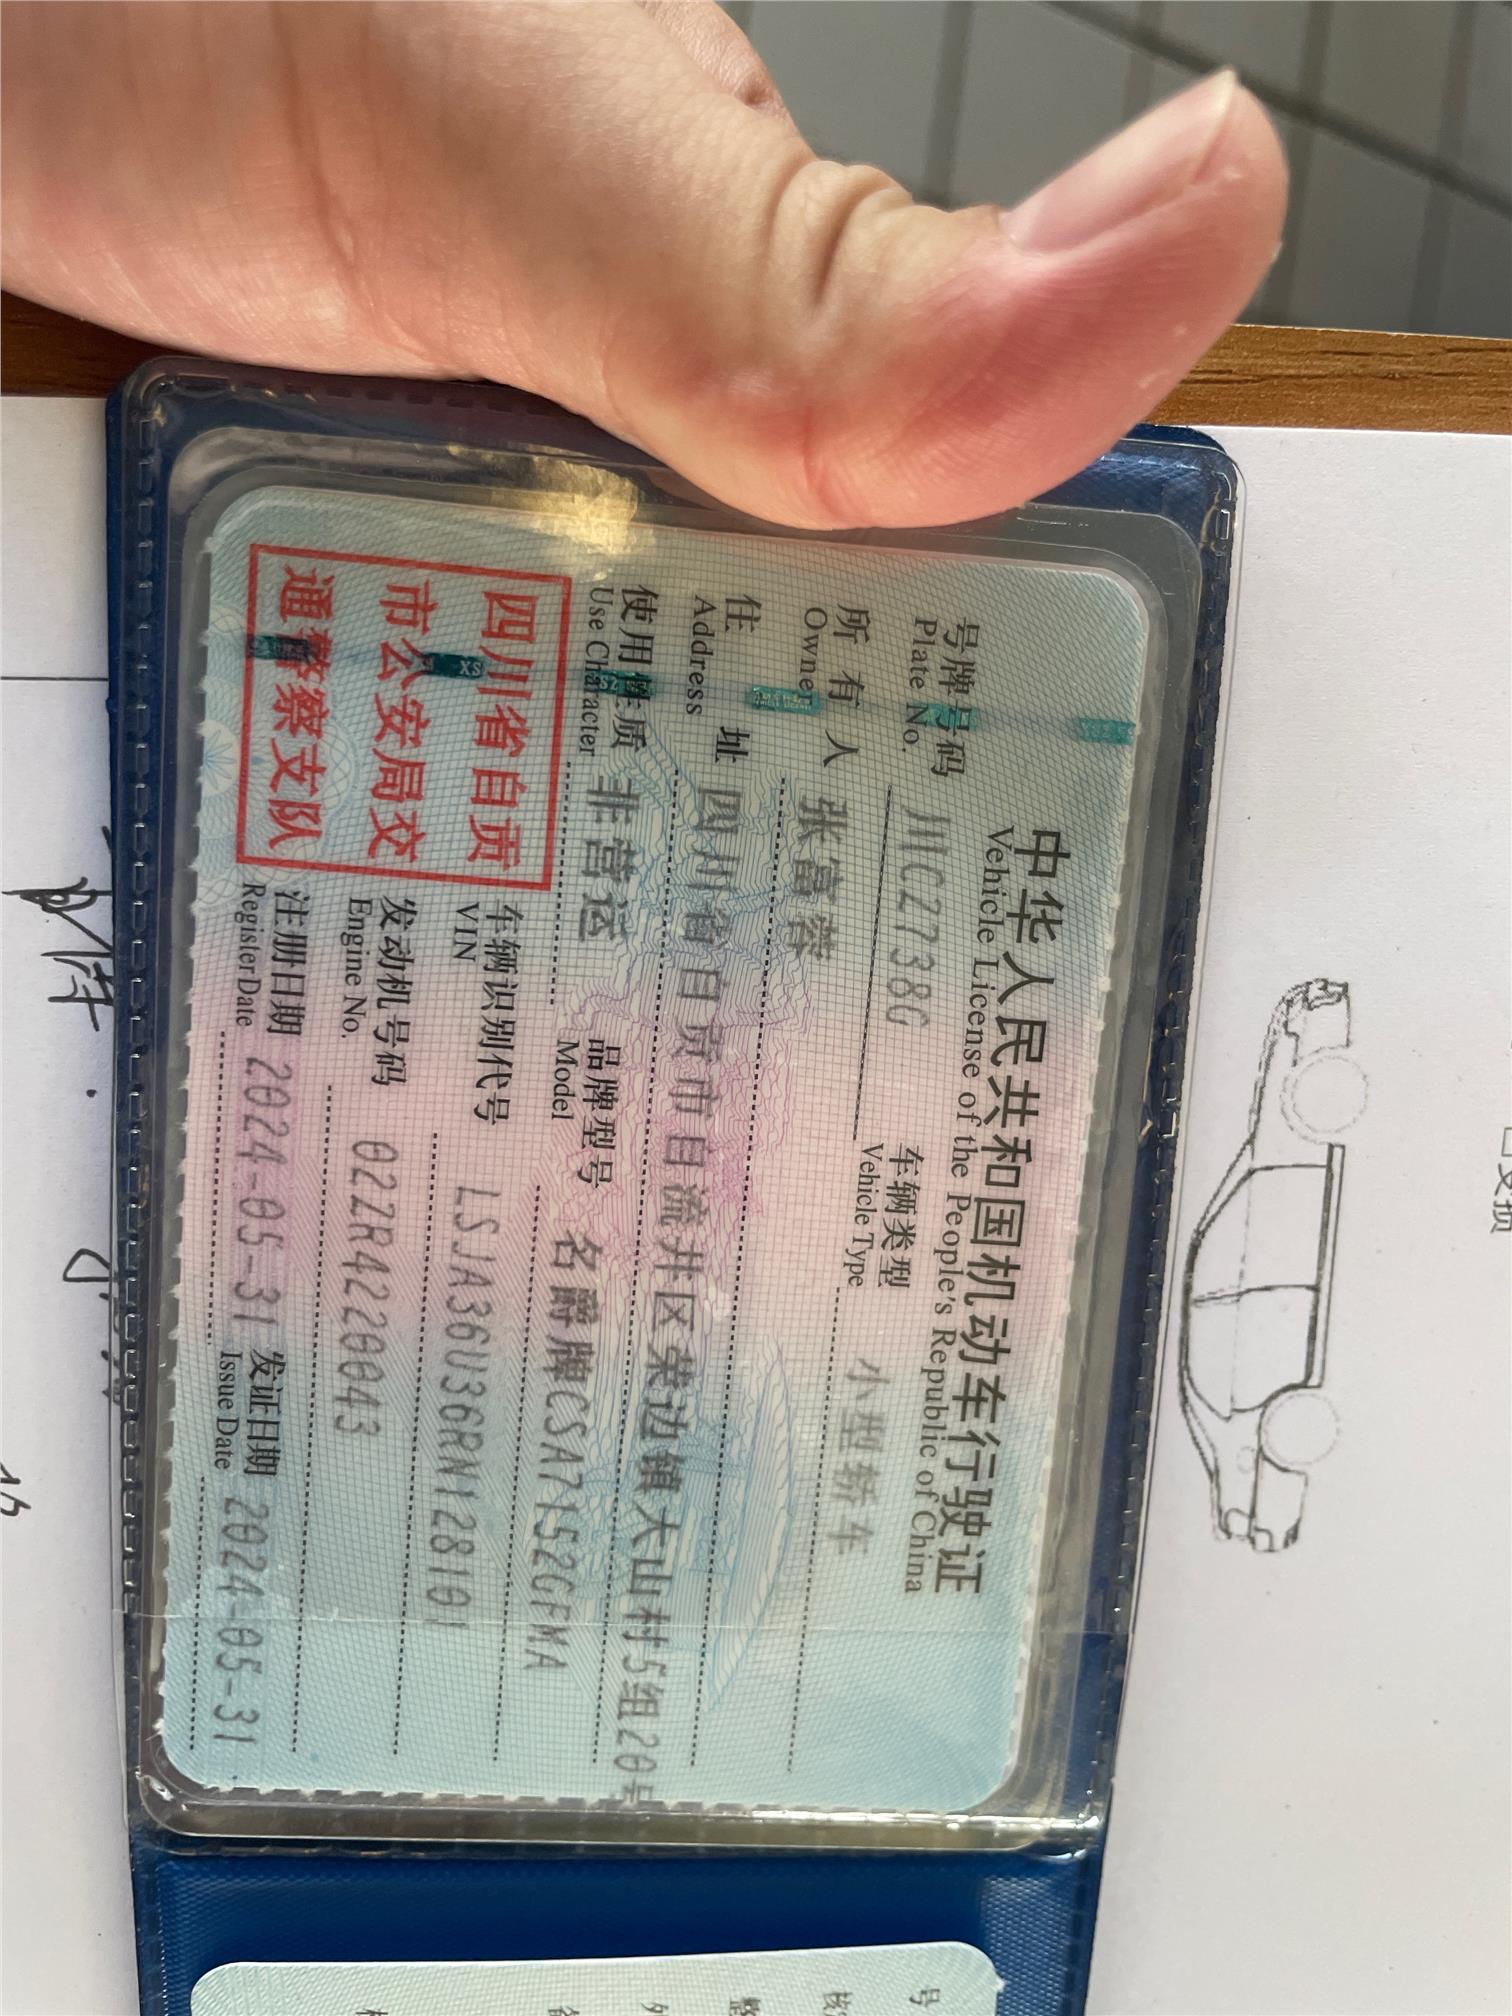 中华人民共和国机动车行驶证
Vehicle License of the People's Republic of China
号牌号码 川C2738G 车辆类型 小型轿车
Plate No. Vehicle Type
所有人 张富蓉
Owner
住址 四川省自贡市自流井区荣边镇大山村5组20号
Address
使用性质 非营运 品牌型号 名爵牌CSA7152GFMA
Use Character Model
四川省自贡
市公安局交
通警察支队
车辆识别代号 LSJA36U36RN128101
VIN
发动机号码 02ZR4220043
Engine No.
注册日期 2024-05-31 发证日期 2024-05-31
Register Date Issue Date
号